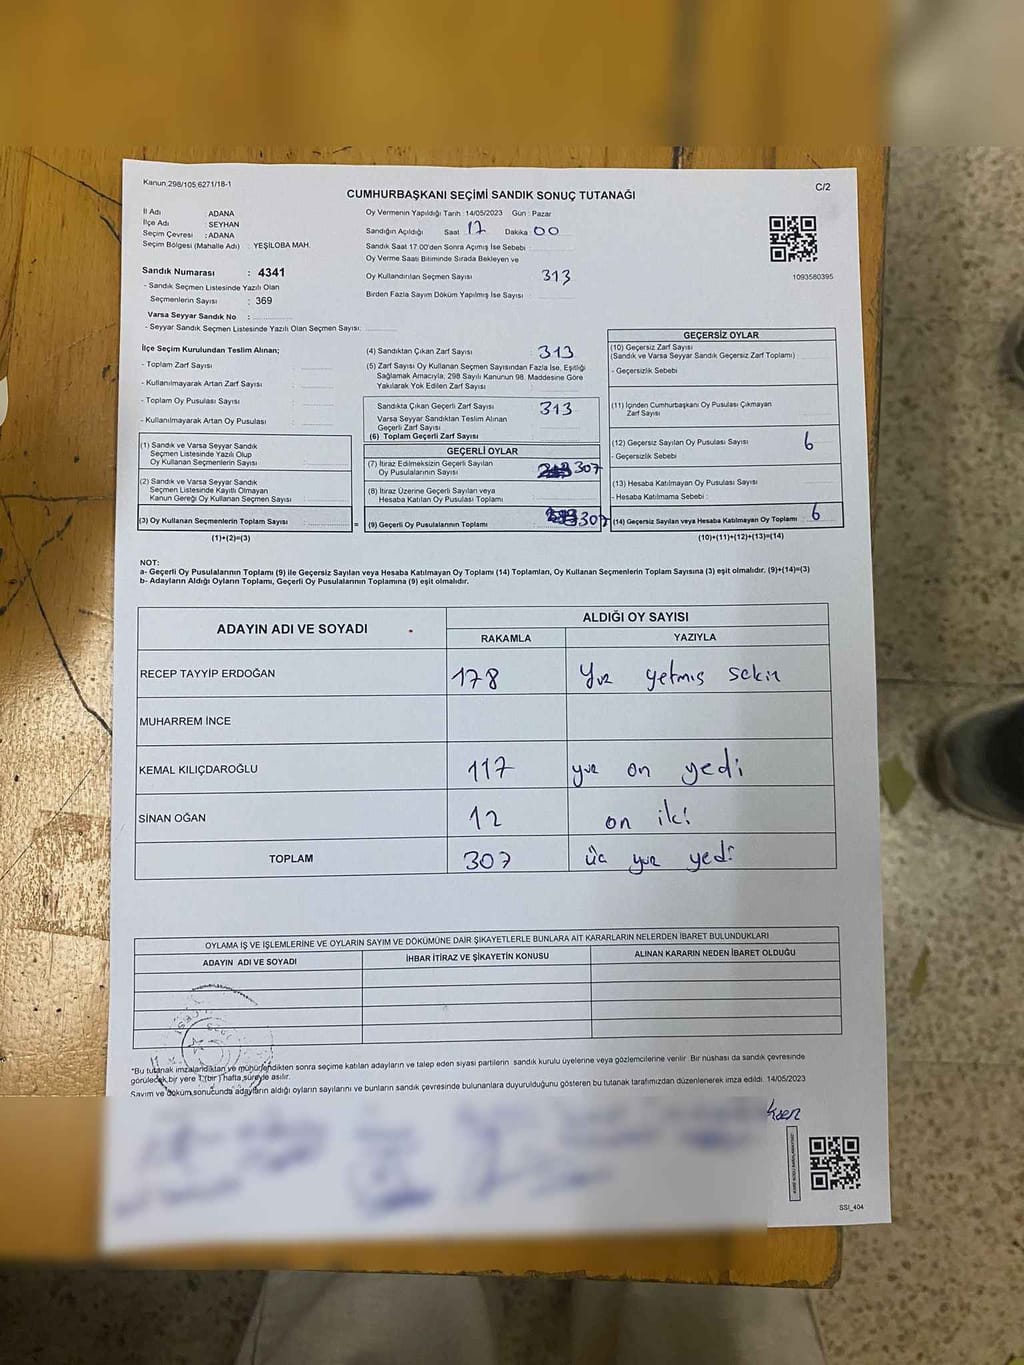 Kanun 298/105,6271/18-1
C/2
CUMHURBAŞKANI SEÇİMİ SANDIK SONUÇ TUTANAĞI
İl Adı : ADANA
İlçe Adı : SEYHAN
Seçim Çevresi : ADANA
Seçim Bölgesi (Mahalle Adı) : YEŞİLOBA MAH.
Sandık Numarası : 4341
- Sandık Seçmen Listesinde Yazılı Olan
Seçmenlerin Sayısı : 369
Varsa Seyyar Sandık No :
- Seyyar Sandık Seçmen Listesinde Yazılı Olan Seçmen Sayısı:
Oy Vermenin Yapıldığı Tarih :14/05/2023 Gün : Pazar
Sandığın Açıldığı Saat 17 Dakika 00
Sandık Saat 17:00'den Sonra Açımış İse Sebebi
Oy Verme Saati Bitiminde Sırada Bekleyen ve
Oy Kullandırılan Seçmen Sayısı 313
Birden Fazla Sayım Döküm Yapılmış İse Sayısı
1093580395
İlçe Seçim Kurulundan Teslim Alınan;
- Toplam Zarf Sayısı :
- Kullanılmayarak Artan Zarf Sayısı :
- Toplam Oy Pusulası Sayısı :
- Kullanılmayarak Artan Oy Pusulası :
(1) Sandık ve Varsa Seyyar Sandık
Seçmen Listesinde Yazılı Olup
Oy Kullanan Seçmenlerin Sayısı :
(2) Sandık ve Varsa Seyyar Sandık
Seçmen Listesinde Kayıtlı Olmayan
Kanun Gereği Oy Kullanan Seçmen Sayısı :
(3) Oy Kullanan Seçmenlerin Toplam Sayısı : =
(1)+(2)=(3)
(4) Sandıktan Çıkan Zarf Sayısı : 313
(5) Zarf Sayısı Oy Kullanan Seçmen Sayısından Fazla İse, Eşitliği
Sağlamak Amacıyla, 298 Sayılı Kanunun 98. Maddesine Göre
Yakılarak Yok Edilen Zarf Sayısı :
Sandıkta Çıkan Geçerli Zarf Sayısı : 313
Varsa Seyyar Sandıktan Teslim Alınan
Geçerli Zarf Sayısı :
(6) Toplam Geçerli Zarf Sayısı :
GEÇERLİ OYLAR
(7) İtiraz Edilmeksizin Geçerli Sayılan
Oy Pusulalarının Sayısı : 307
(8) İtiraz Üzerine Geçerli Sayılan veya
Hesaba Katılan Oy Pusulası Toplamı :
(9) Geçerli Oy Pusulalarının Toplamı : 307
GEÇERSİZ OYLAR
(10) Geçersiz Zarf Sayısı
(Sandık ve Varsa Seyyar Sandık Geçersiz Zarf Toplamı) :
- Geçersizlik Sebebi
(11) İçinden Cumhurbaşkanı Oy Pusulası Çıkmayan
Zarf Sayısı :
(12) Geçersiz Sayılan Oy Pusulası Sayısı : 6
- Geçersizlik Sebebi
(13) Hesaba Katılmayan Oy Pusulası Sayısı :
- Hesaba Katılmama Sebebi :
(14) Geçersiz Sayılan veya Hesaba Katılmayan Oy Toplamı : 6
(10)+(11)+(12)+(13)=(14)
NOT:
a- Geçerli Oy Pusulalarının Toplamı (9) ile Geçersiz Sayılan veya Hesaba Katılmayan Oy Toplamı (14) Toplamları, Oy Kullanan Seçmenlerin Toplam Sayısına (3) eşit olmalıdır. (9)+(14)=(3)
b- Adayların Aldığı Oyların Toplamı, Geçerli Oy Pusulalarının Toplamına (9) eşit olmalıdır.
ADAYIN ADI VE SOYADI
ALDIĞI OY SAYISI
RAKAMLA YAZIYLA
RECEP TAYYİP ERDOĞAN 178 yüz yetmiş sekiz
MUHARREM İNCE
KEMAL KILIÇDAROĞLU 117 yüz on yedi
SİNAN OĞAN 12 on iki
TOPLAM 307 üç yüz yedi
OYLAMA İŞ VE İŞLEMLERİNE VE OYLARIN SAYIM VE DÖKÜMÜNE DAİR ŞİKAYETLERLE BUNLARA AİT KARARLARIN NELERDEN İBARET BULUNDUKLARI
ADAYIN ADI VE SOYADI İHBAR İTİRAZ VE ŞİKAYETİN KONUSU ALINAN KARARIN NEDEN İBARET OLDUĞU
*Bu tutanak imzalandıktan ve mühürlendikten sonra seçime katılan adayların ve talep eden siyasi partilerin sandık kurulu üyelerine veya gözlemcilerine verilir. Bir nüshası da sandık çevresinde
görülecek bir yere 1 (bir) hafta süreyle asılır.
Sayım ve döküm sonucunda adayların aldığı oyların sayılarını ve bunların sandık çevresinde bulunanlara duyurulduğunu gösteren bu tutanak tarafımızdan düzenlenerek imza edildi. 14/05/2023
SSI_404